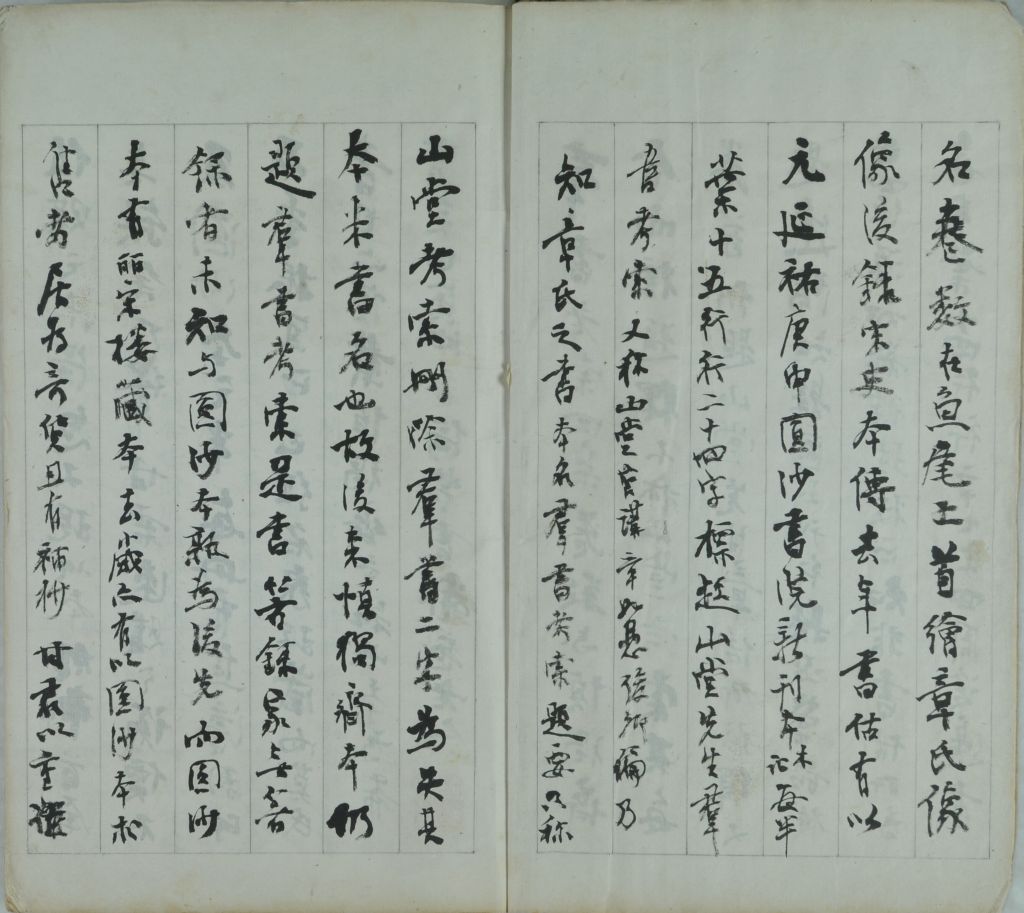 名卷数在魚尾上首繪章氏像
像後錄宋史本傳去年書估有以
元延祐庚申圓沙書院新刊本木記每半
葉十五行行二十四字標題山堂先生羣
書考索又称山堂宮講章如愚俊卿編乃
知章氏之書本名羣書考索題要只称
山堂考索刪除羣書二字為失其
本來書名也故後來慎獨齋本仍
題羣書考索是書等錄家無著
錄者未知与圓沙本孰為後先而圓沙
本有皕宋樓藏本去歲亦有以圓沙本求
售者居为奇貨且有補抄甘君以重